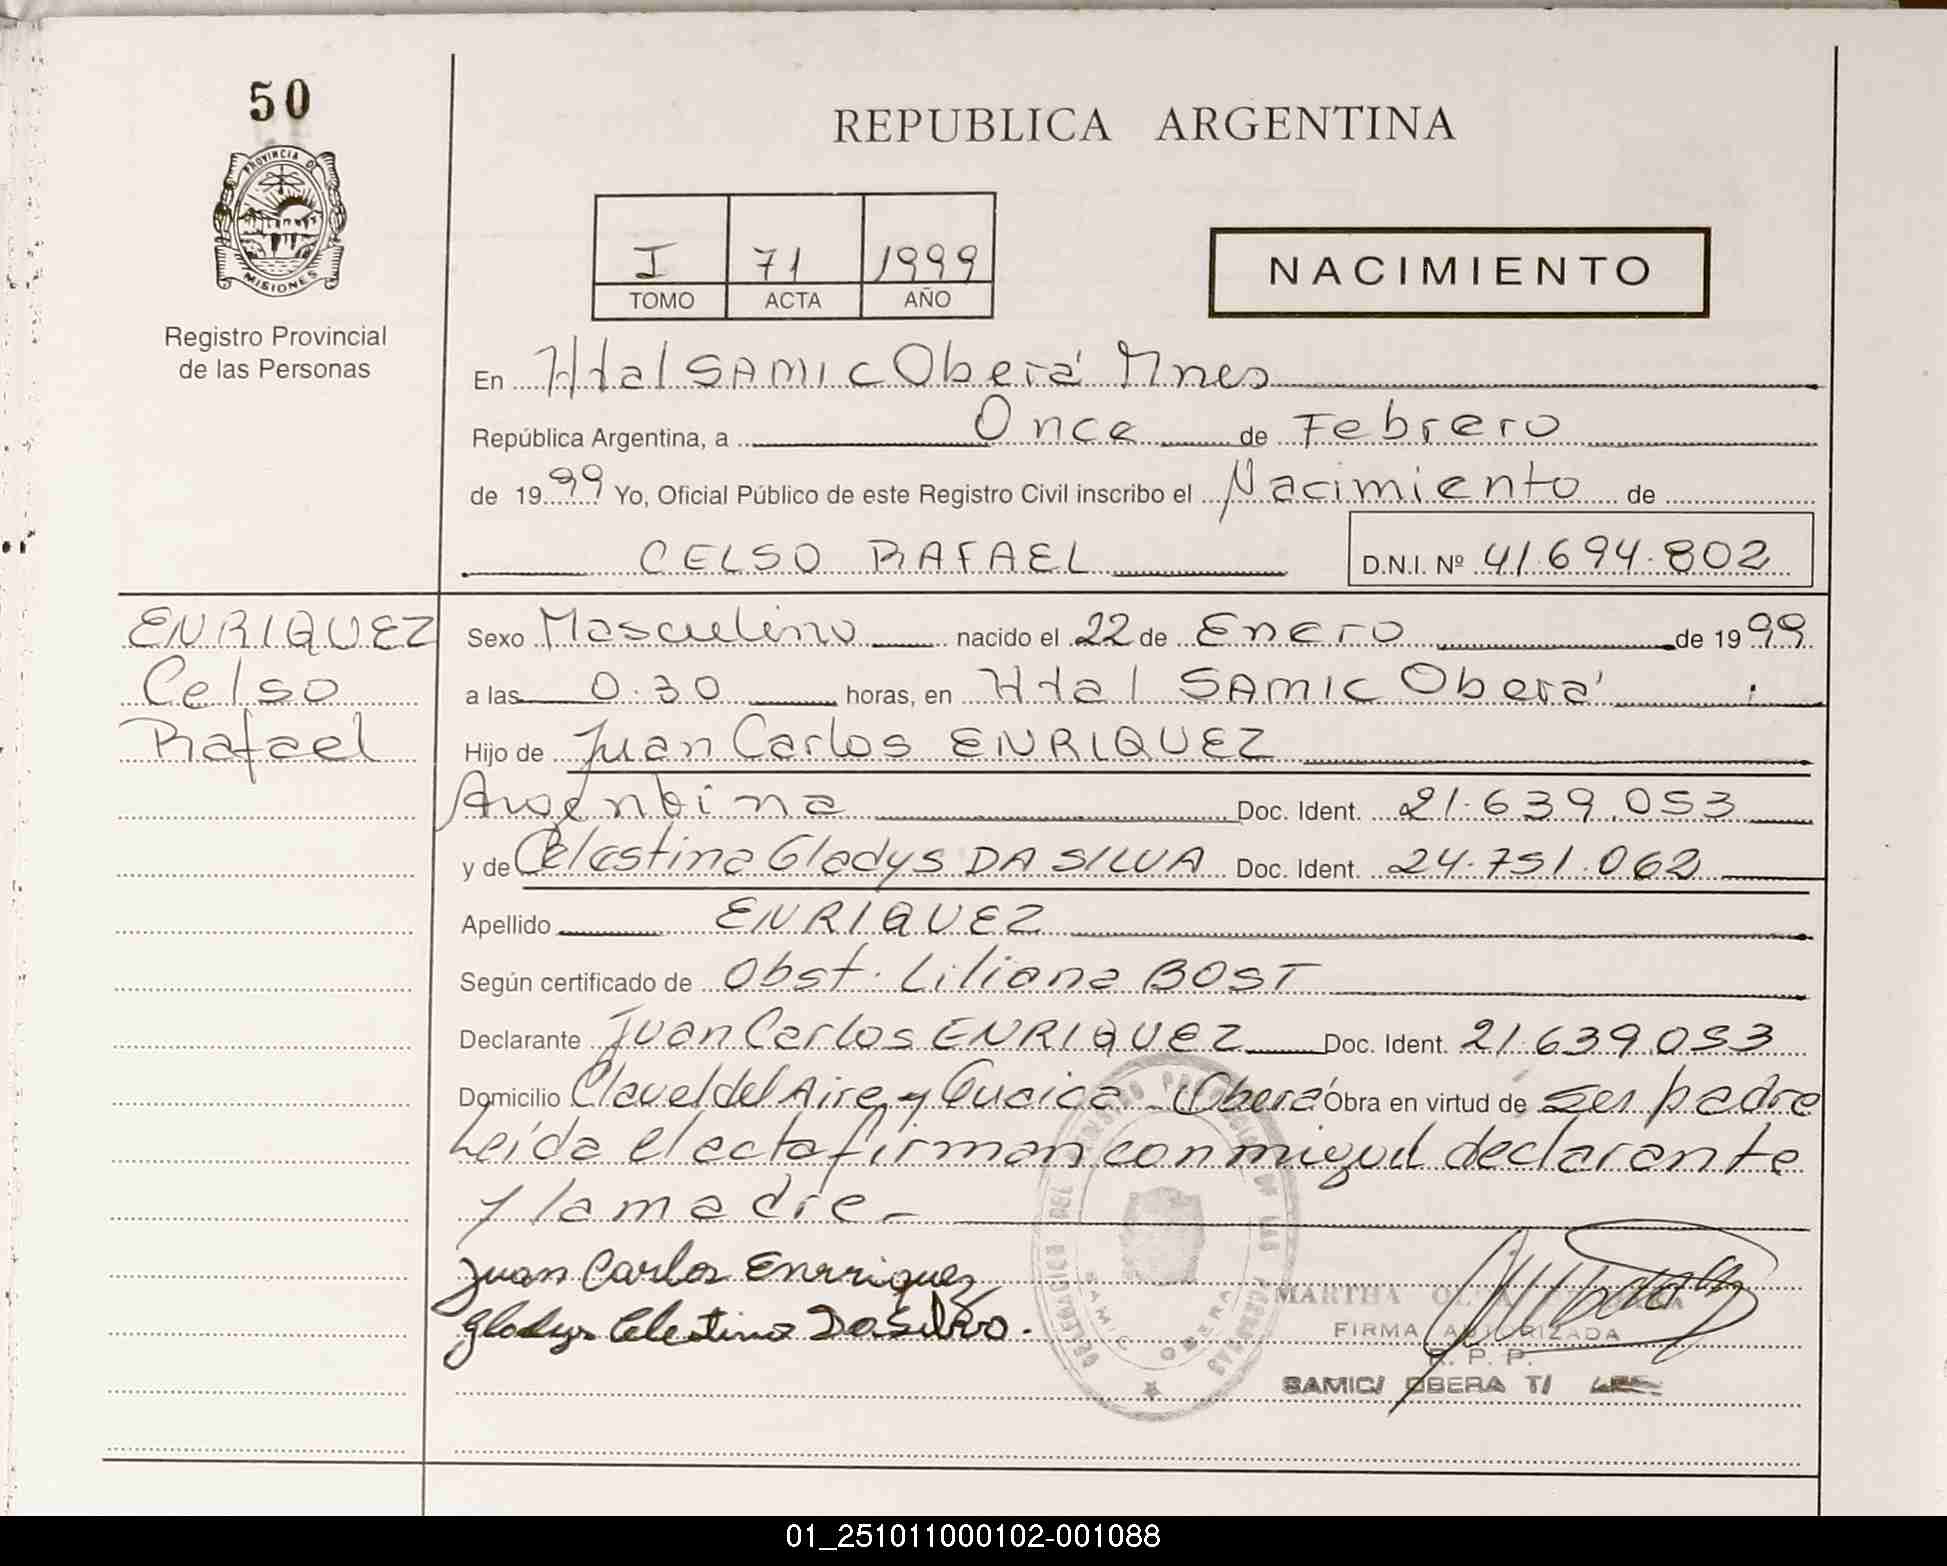 50
PROVINCIA DE
MISIONES
Registro Provincial
de las Personas
REPUBLICA ARGENTINA
I 71 1999
TOMO ACTA AÑO
NACIMIENTO
En Htal SAMIC Oberá Mnes
República Argentina, a Once de Febrero
de 1999 Yo, Oficial Público de este Registro Civil inscribo el Nacimiento de
CELSO RAFAEL D.N.I. Nº 41.694.802
ENRIQUEZ
Celso
Rafael
Sexo Masculino nacido el 22 de Enero de 1999
a las 0.30 horas, en Htal SAMIC Oberá
Hijo de Juan Carlos ENRIQUEZ
Argentina Doc. Ident. 21.639.053
y de Celestina Gladys DA SILVA Doc. Ident. 24.751.062
Apellido ENRIQUEZ
Según certificado de Obst. Liliana BOST
Declarante Juan Carlos ENRIQUEZ Doc. Ident. 21.639.053
Domicilio Clavel del Aire y Guaica - Oberá Obra en virtud de ser padre
Leída el acta firman conmigo el declarante
y la madre.-
Juan Carlos Enrriquez
Gladys Celestina Da Silva.
MARTHA
FIRMA AUTORIZADA
R. P. P.
SAMIC/ OBERA T/
SAMIC OBERA
01_251011000102-001088